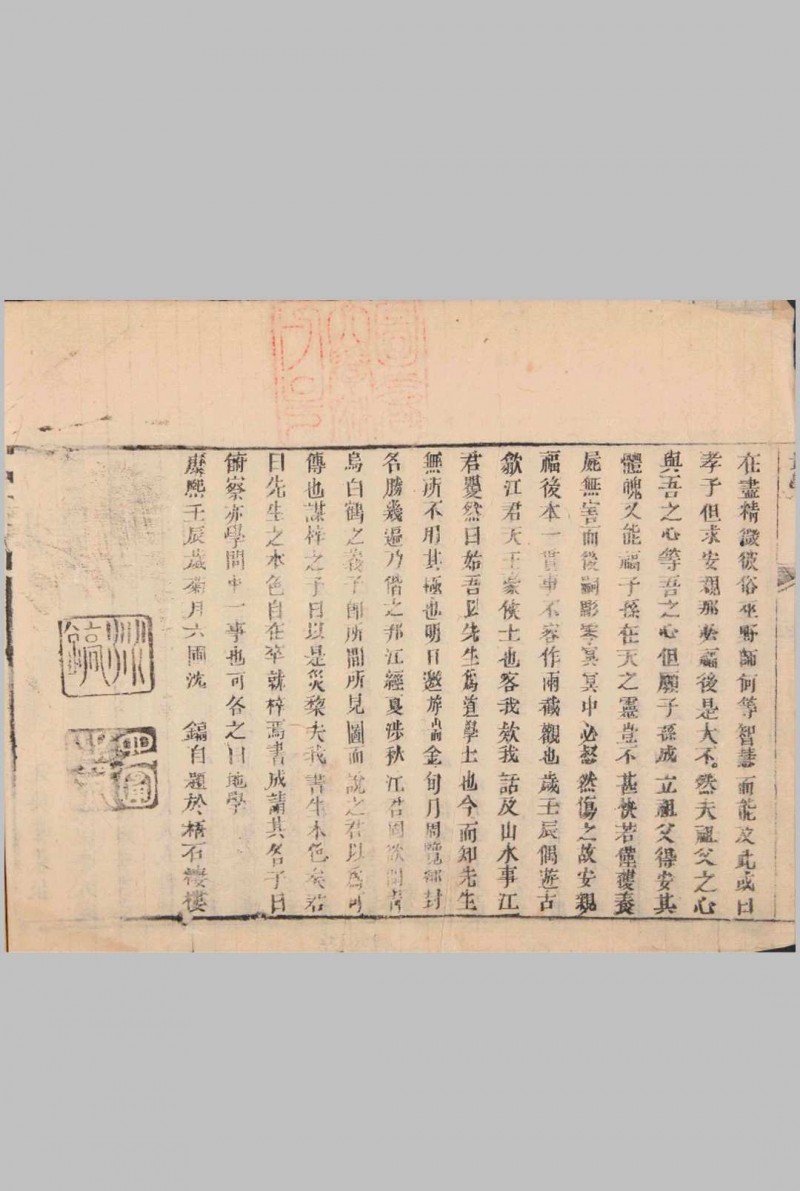 在盡精微彼俗巫野師何等智慧而能及此或曰
孝子但求安親那於福後是大不然夫祖父之心
與吾之心等吾之心但願子孫成立祖父得安其
體魄又能福子孫在天之靈豈不甚快若僅獲養
屍無害而後嗣彫零冥冥中必愀然傷之故安親
福後本一貫事不容作兩截觀也歲壬辰偶遊古
歙江君天王豪俠士也客我欵我話及山水事江
君矍然曰始吾以先生為道學士也今而知先生
無所不用其極也明日邀游黃金旬月周覽封
名勝幾遍乃偕之邗江經夏涉秋江君固欲聞青
烏白鶴之義予即所聞所見圖而說之君以為可
傳也謀梓之予曰以是災棃夫我書生本色矣君
曰先生之本色自在卒就梓焉書成請其名予曰
俯察亦學問中一事也可名之曰地學
康熙壬辰歲菊月六圃沈 鎬自題於梧石樓
沈鎬
六圃